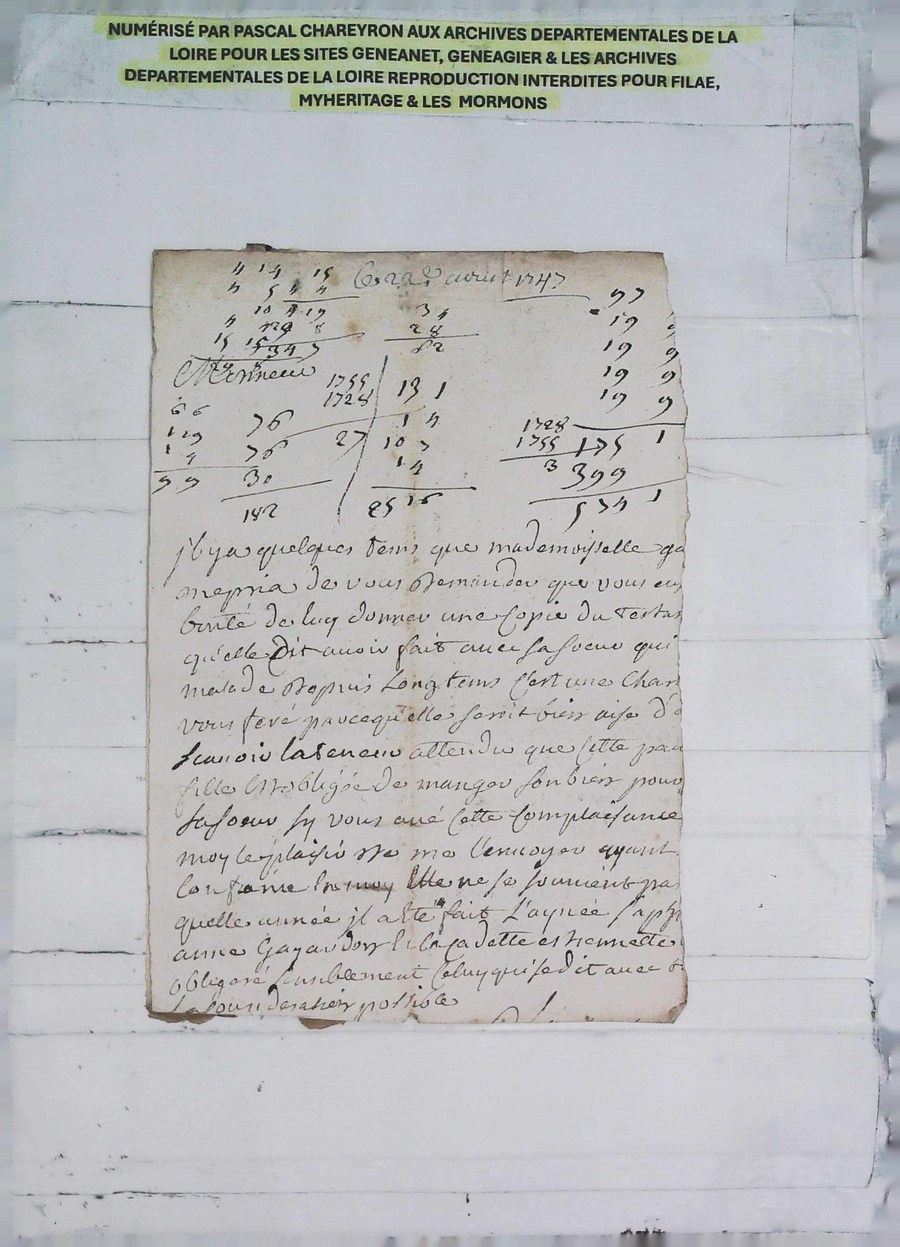 NUMÉRISÉ PAR PASCAL CHAREYRON AUX ARCHIVES DEPARTEMENTALES DE LA
LOIRE POUR LES SITES GENEANET, GENEAGIER & LES ARCHIVES
DEPARTEMENTALES DE LA LOIRE REPRODUCTION INTERDITES POUR FILAE,
MYHERITAGE & LES MORMONS
Ce 22e aoust 1747
Monsieur
1755
1728
27
76
76
30
182
34
28
62
13 1
1 4
10 7
1 4
25 16
97
19
19 9
19 9
19 9
1728
1755
3
175 1
399
574 1
jl y a quelques tems que mademoiselle ga
me pria de vous demander que vous eus
bonté de luy donner une Copie du testam
qu'elle dit auoir fait auec sa soeur qui
malade depuis Longtems C'est une Char
vous feré parcequ'elle seroit bien aise d'e
scauoir la teneur attendu que Cette pau
fille est obligée de manger son bien pour
sa soeur sy vous aué Cette Complaisance
moy le plaisir de me l'enuoyer ayant
Confiance en moy Elle ne se souuient pa
quelle année jl a été fait L'aynée s'ap
anne Gayardon et la Cadette estiennette
obligeré sensiblement Celuy qui se dit auec
la Consideration possible